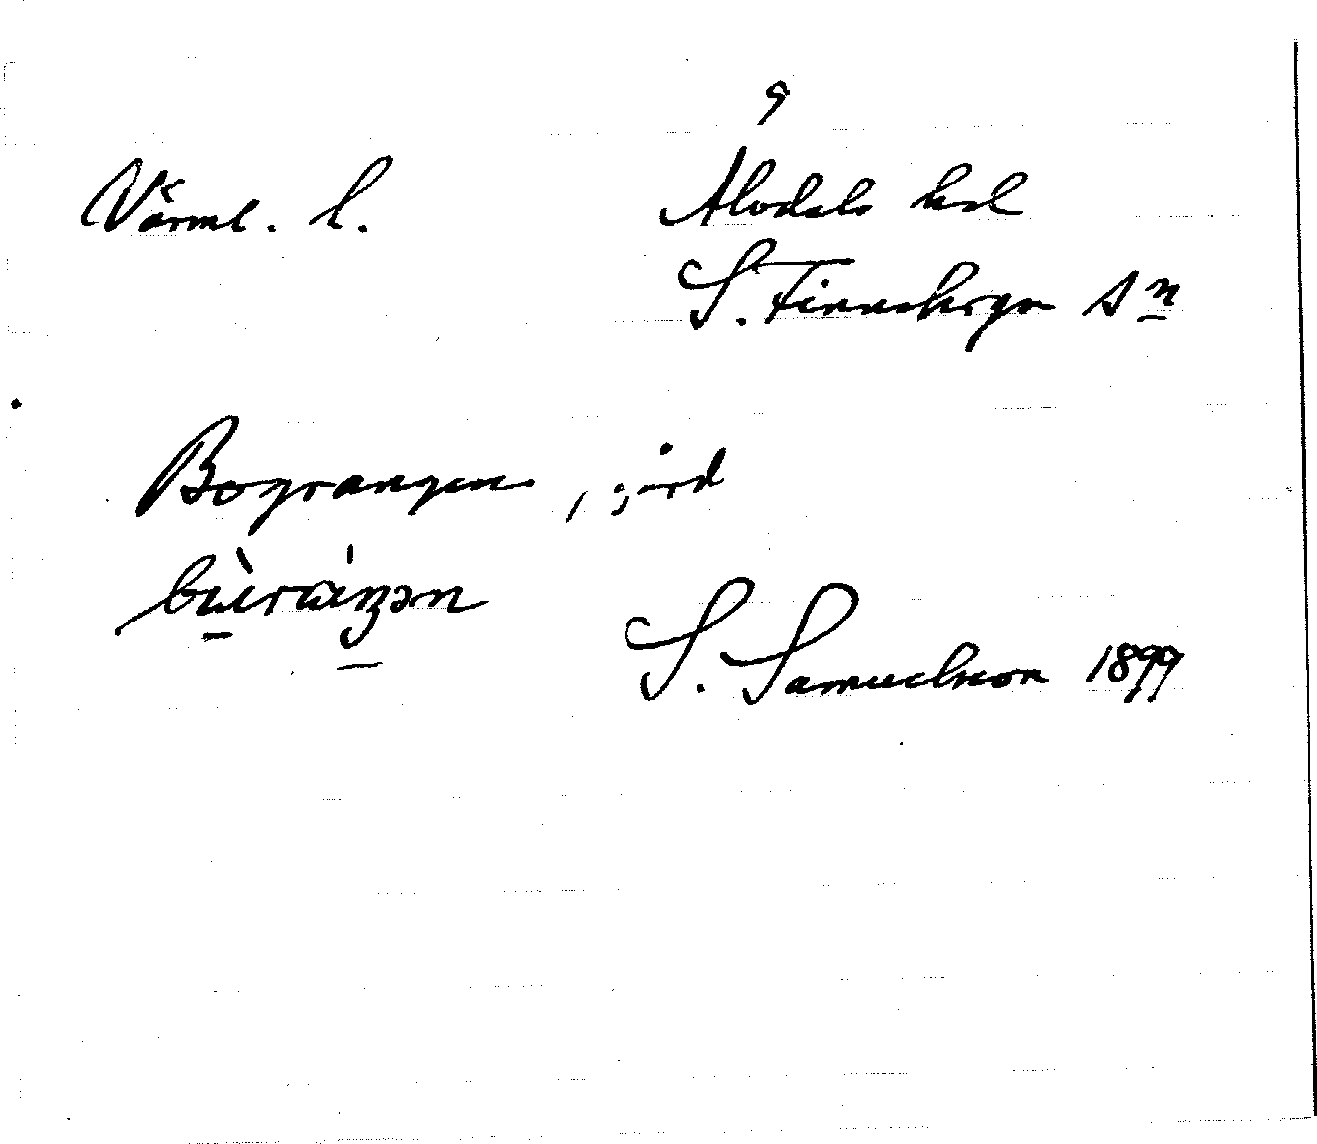 9
Värml. l.
Älvdals hd
S. Finnskoga sn
Bograngen, gård
S. Samuelsson 1899